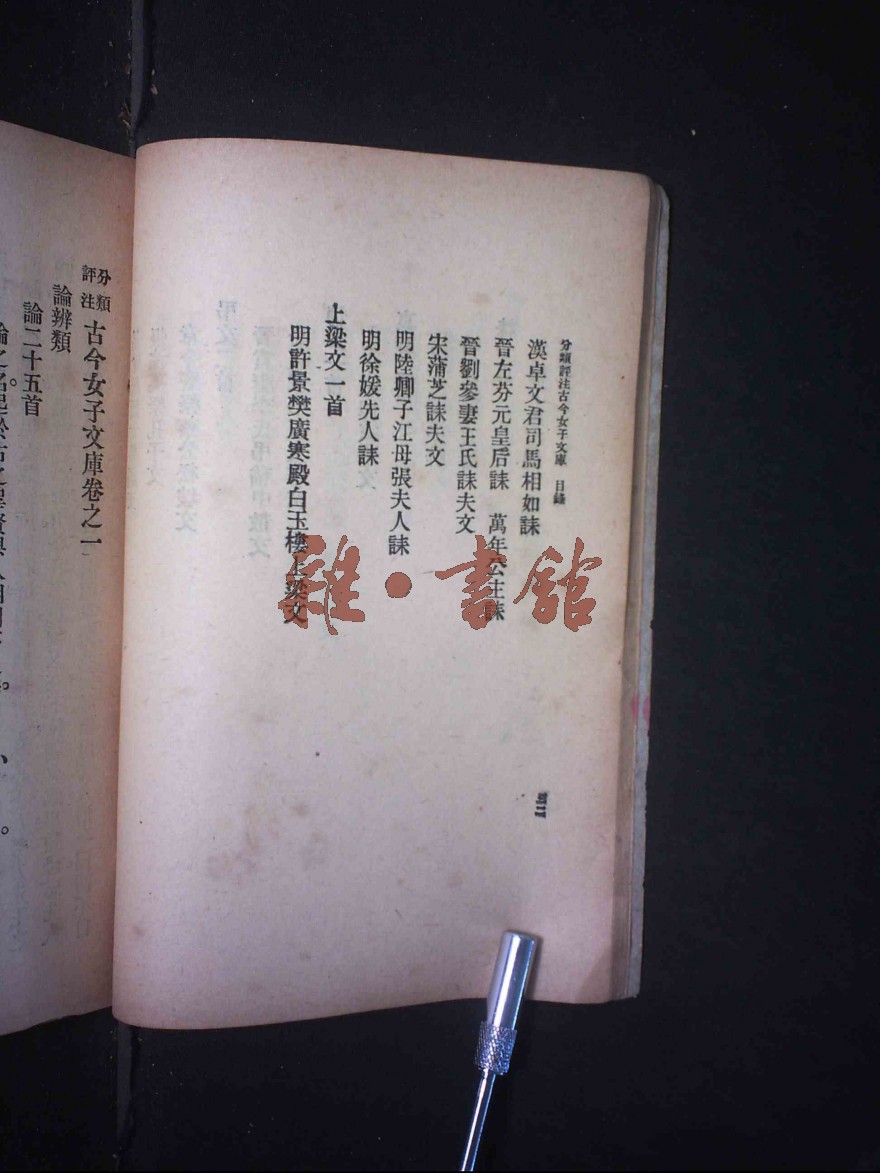 分類評注古今女子文庫 目錄
漢卓文君司馬相如誄
晉左芬元皇后誄 萬年公主誄
晉劉參妻王氏誄夫文
宋蒲芝誄夫文
明陸卿子江母張夫人誄
明徐媛先人誄
上梁文一首
明許景樊廣寒殿白玉樓上梁文
分類評注古今女子文庫卷之一
論辨類
論二十五首
雜·書館